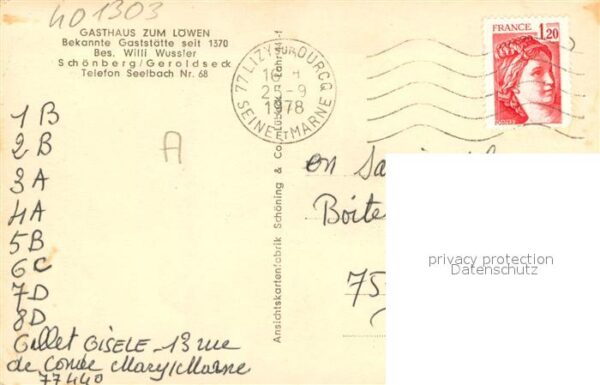 401303
GASTHAUS ZUM LÖWEN
Bekannte Gaststätte seit 1370
Bes. Willi Wussler
Schönberg/Geroldseck
Telefon Seelbach Nr. 68
77 LIZY SUR OURCQ
16 H
2 -9
1978
SEINE ET MARNE
FRANCE
1,20
1 B
2 B
3 A
4 A
5 B
6 C
7 D
8 D
A
Ansichtskartenfabrik Schöning & Co. Lahr
on
Boite
75
privacy protection
Datenschutz
Gallet GISELE - 13 rue
de Condé Mary/Marne
77440